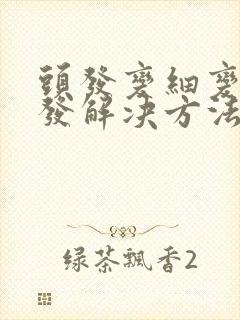 頭發變細變
發解决方法
绿茶飄香2